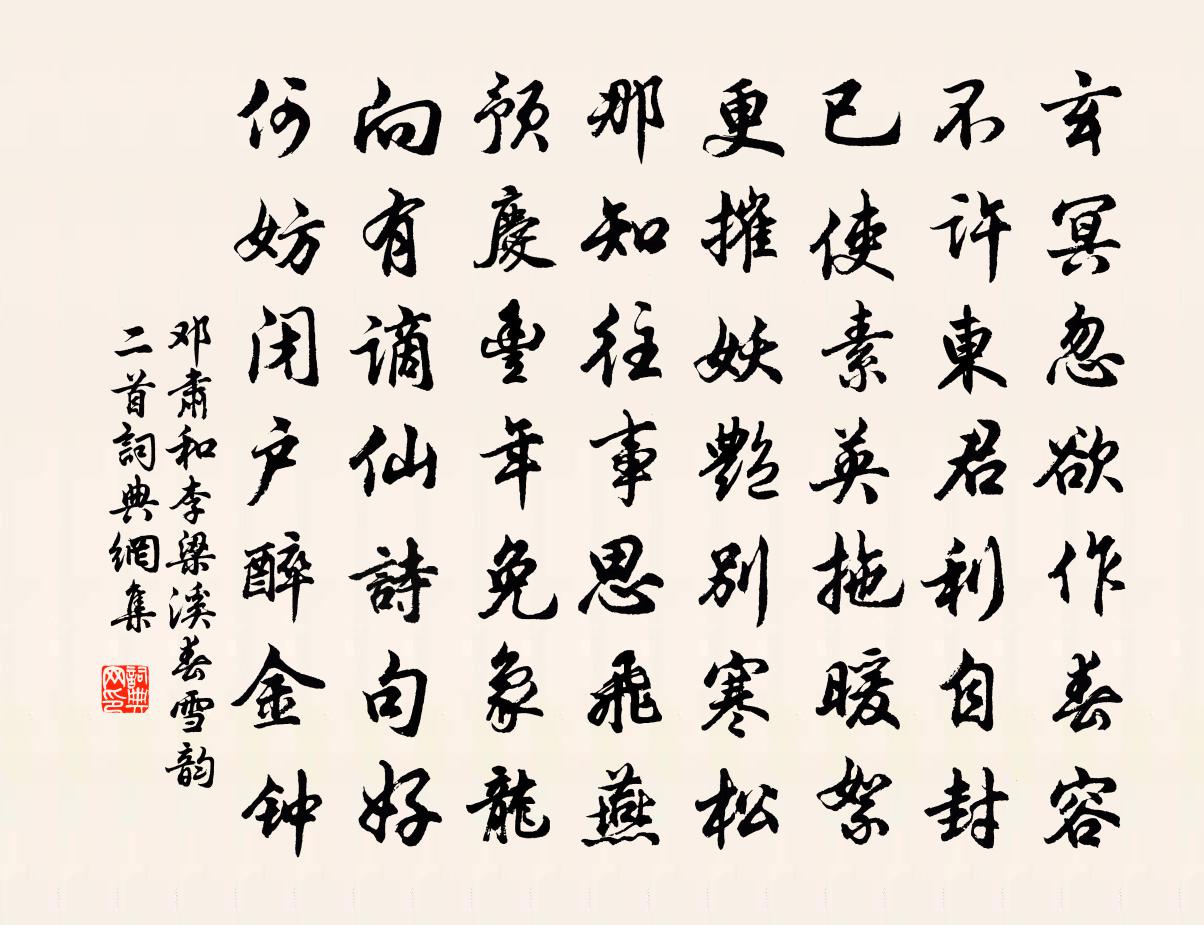 玄冥忽欲作春容
不許東君利自封
已使素英拖暖絮
更摧妖艷别寒松
那知往事思飛燕
預慶豐年兔象龍
向有謫仙詩句好
何妨闭户醉金钟
邓肅和李梁溪春雪韵
二首詞典網集
詞典
网印